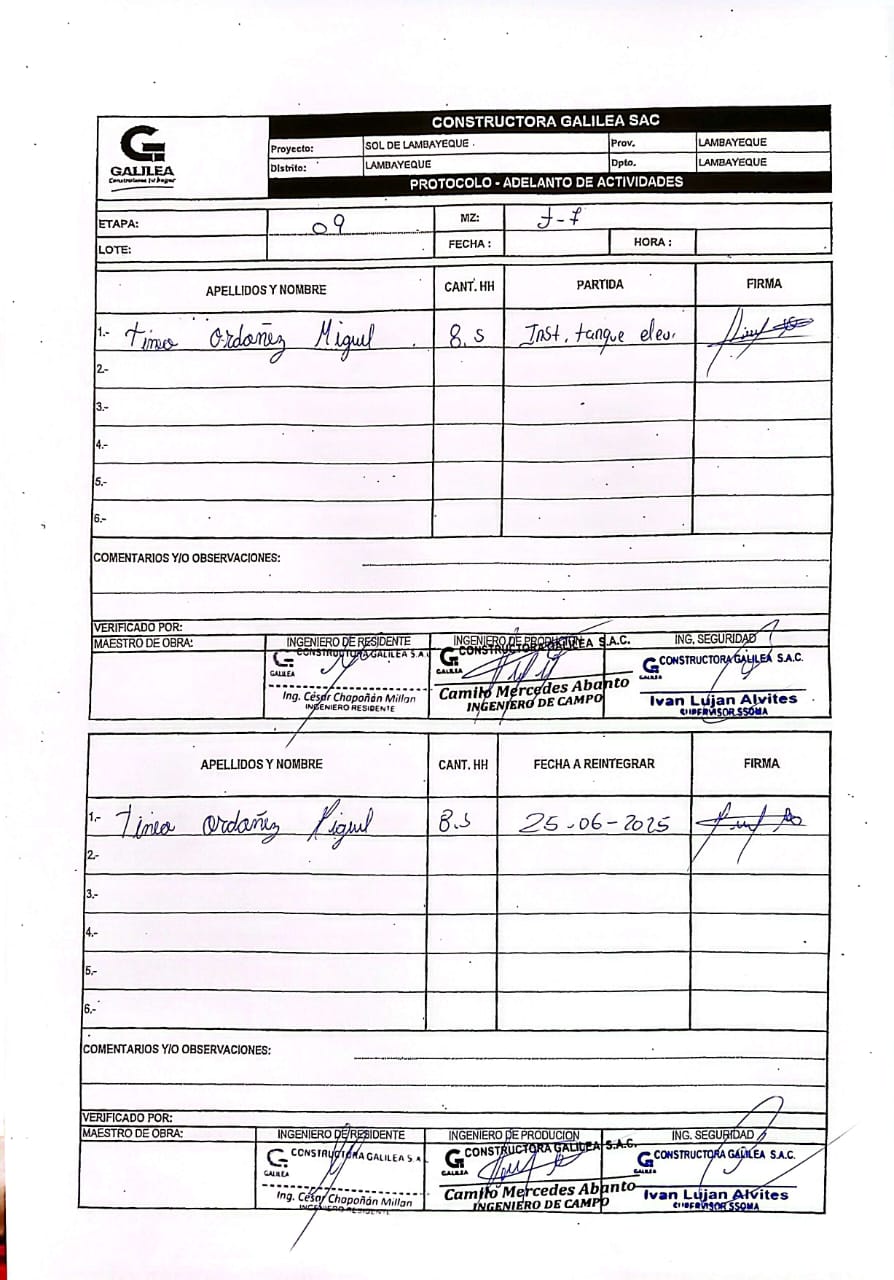 CONSTRUCTORA GALILEA SAC
GALILEA
Construimos tu hogar
Proyecto: SOL DE LAMBAYEQUE Prov. LAMBAYEQUE
Distrito: LAMBAYEQUE Dpto. LAMBAYEQUE
PROTOCOLO - ADELANTO DE ACTIVIDADES
ETAPA: 09 MZ: J-7
LOTE: FECHA : HORA :
APELLIDOS Y NOMBRE CANT. HH PARTIDA FIRMA
1.- Tineo Ordoñez Miguel 8.5 Inst. tanque elev.
2.-
3.-
4.-
5.-
6.-
COMENTARIOS Y/O OBSERVACIONES:
VERIFICADO POR:
MAESTRO DE OBRA: INGENIERO DE RESIDENTE INGENIERO DE PRODUCION ING. SEGURIDAD
GALILEA CONSTRUCTORA GALILEA S.A. GALILEA CONSTRUCTORA GALILEA S.A.C. GALILEA CONSTRUCTORA GALILEA S.A.C.
Ing. César Chapoñán Millan Camilo Mercedes Abanto Ivan Lujan Alvites
INGENIERO RESIDENTE INGENIERO DE CAMPO SUPERVISOR SSOMA
APELLIDOS Y NOMBRE CANT. HH FECHA A REINTEGRAR FIRMA
1.- Tineo Ordoñez Miguel 8.5 25-06-2025
2.-
3.-
4.-
5.-
6.-
COMENTARIOS Y/O OBSERVACIONES:
VERIFICADO POR:
MAESTRO DE OBRA: INGENIERO DE RESIDENTE INGENIERO DE PRODUCION ING. SEGURIDAD
GALILEA CONSTRUCTORA GALILEA S.A. GALILEA CONSTRUCTORA GALILEA S.A.C. GALILEA CONSTRUCTORA GALILEA S.A.C.
Ing. César Chapoñán Millan Camilo Mercedes Abanto Ivan Lujan Alvites
INGENIERO RESIDENTE INGENIERO DE CAMPO SUPERVISOR SSOMA